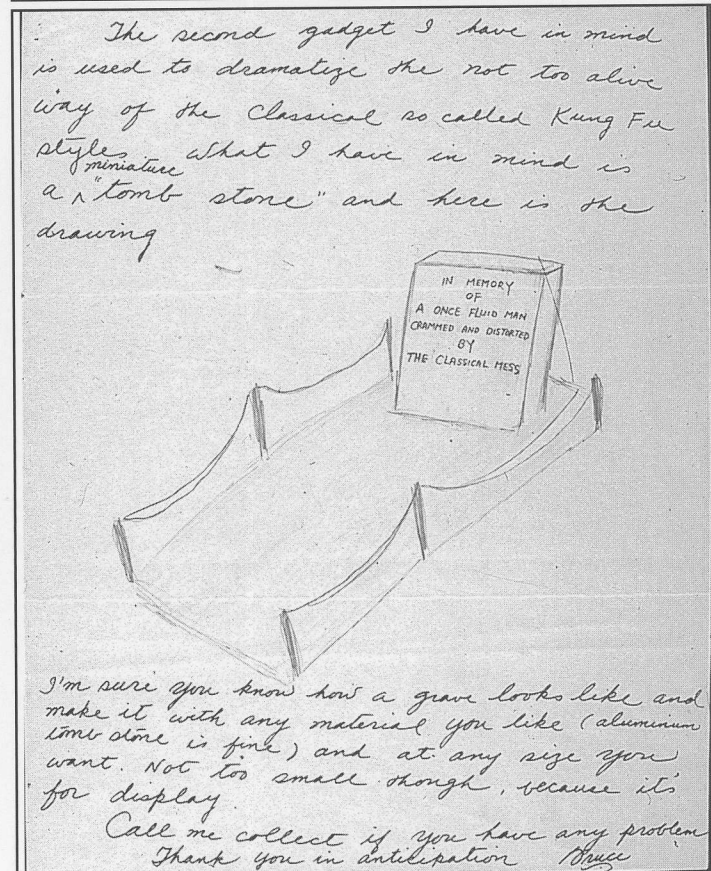 The second gadget I have in mind
is used to dramatize the not too alive
way of the Classical so called Kung Fu
styles. What I have in mind is
a ^ miniature "tomb stone" and here is the
drawing
IN MEMORY
OF
A ONCE FLUID MAN
CRAMMED AND DISTORTED
BY
THE CLASSICAL MESS
I'm sure you know how a grave looks like and
make it with any material you like (aluminium
tomb stone is fine) and at any size you
want. Not too small though, because it's
for display.
Call me collect if you have any problem
Thank you in anticipation Bruce